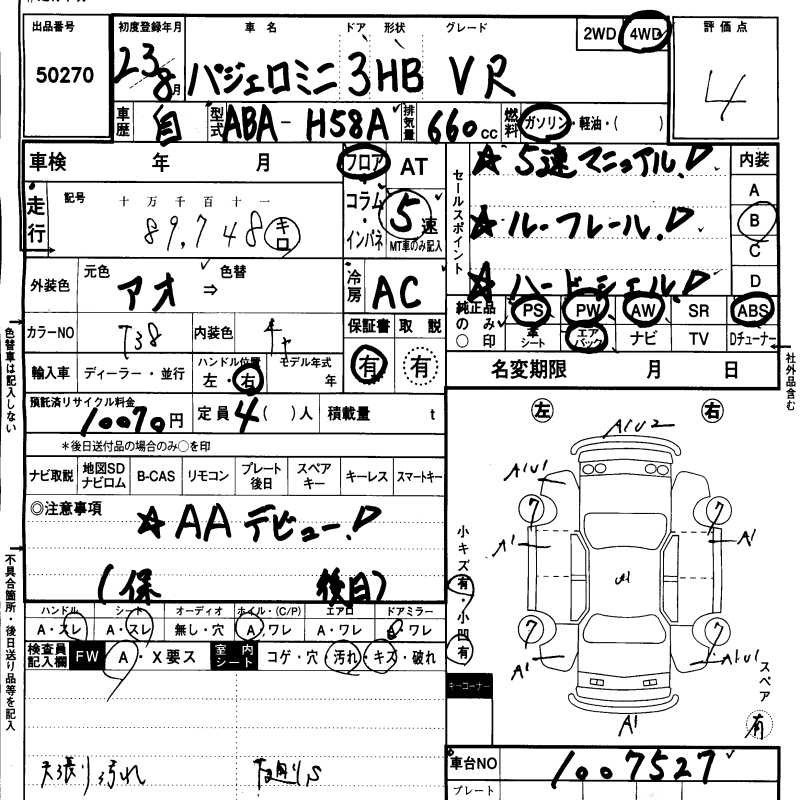 出品番号 初度登録年月 車名 ドア 形状 グレード 2WD 4WD 評価点
50270 23 8月 パジェロミニ 3 HB VR 4
車歴 自 型式 ABA-H58A 排気量 660cc 燃料 ガソリン・軽油・( )
車検 年 月 フロア AT
セールスポイント ☆ 5速マニュアル!
内装
A
走行 記号 十万千百十一 コラム・インパネ 5速
89,748 キロ MT車のみ記入
☆ ルーフレール!
B
C
外装色 元色 アオ ⇒ 色替 冷房 AC
☆ ハードシェル!
D
カラーNO T38 内装色 保証書 取説
純正品のみ○印 PS PW AW SR ABS
本シート エアバック ナビ TV Dチューナー
輸入車 ディーラー・並行 ハンドル位置 左・右 モデル年式 年 有 有
名変期限 月 日
社外品含む
色替車は記入しない
預託済リサイクル料金 10070円 定員 4( )人 積載量 t
*後日送付品の場合のみ○を印
ナビ取説 地図SDナビロム B-CAS リモコン プレート後日 スペアキー キーレス スマートキー
◎注意事項
☆ AAデビュー!
(保 後日)
左 右
A1U2
A1U1
7 7
A1 A1
小キズ 有・小凹 有
7 7
A1 A1U1
A1
スペア 有
キーコーナー
不具合箇所・後日送り品等を記入
ハンドル シート オーディオ ホイル・(C/P) エアロ ドアミラー
A・スレ A・スレ 無し・穴 A・ワレ A・ワレ A・ワレ
検査員記入欄 FW A・X要ス 室内シート コゲ・穴・汚れ・キズ・破れ
天張り汚れ
車台NO 1007527
プレート